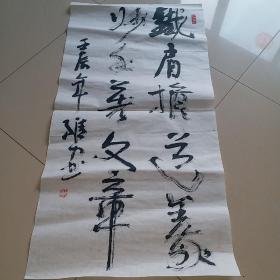 鐵肩擔道義
妙手著文章
壬辰年